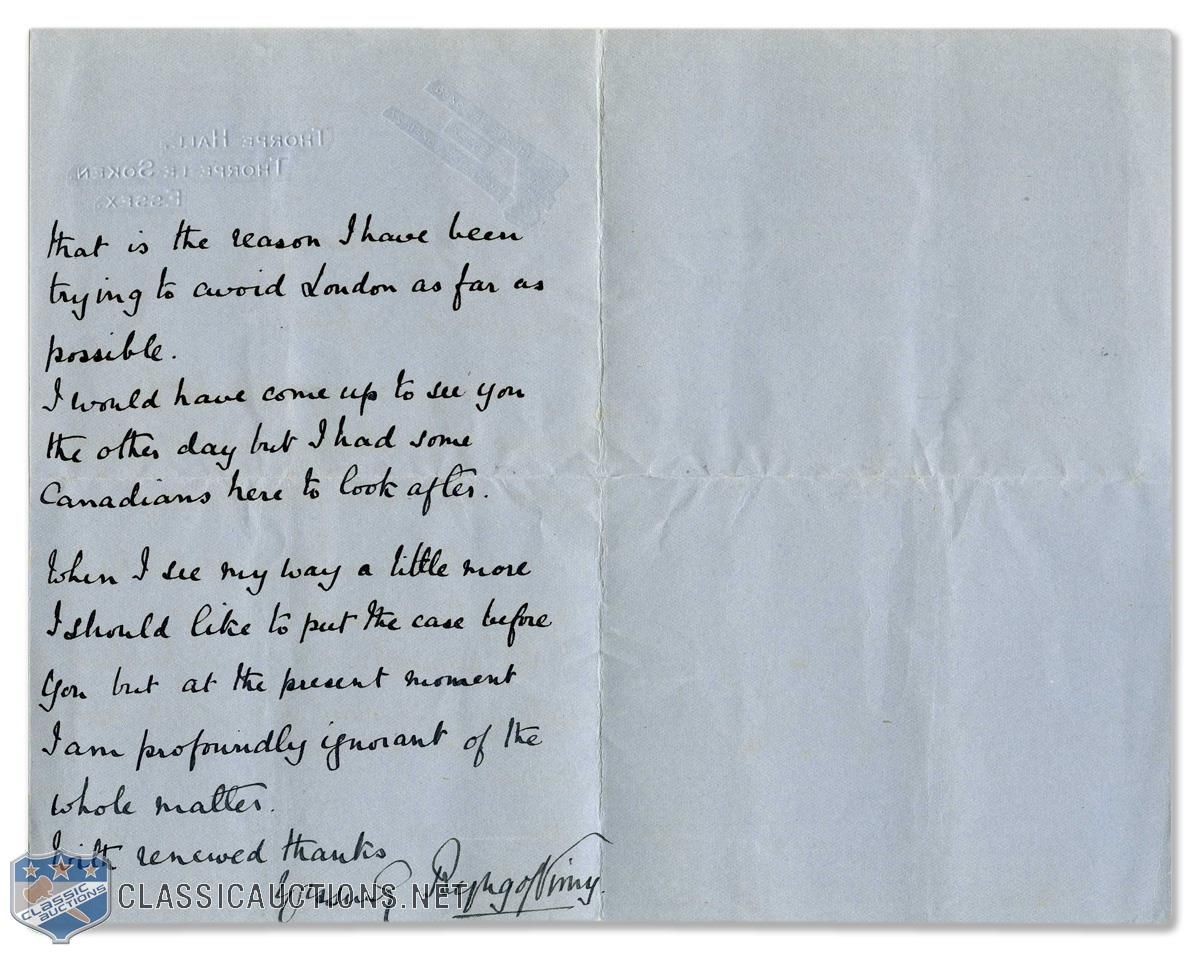 THORPE HALL,
THORPE LE SOKEN,
ESSEX.
that is the reason I have been
trying to avoid London as far as
possible.
I would have come up to see you
the other day but I had some
Canadians here to look after.
When I see my way a little more
I should like to put the case before
you but at the present moment
I am profoundly ignorant of the
whole matter.
With renewed thanks
Byng of Vimy.
CLASSIC AUCTIONS
CLASSICAUCTIONS.NET